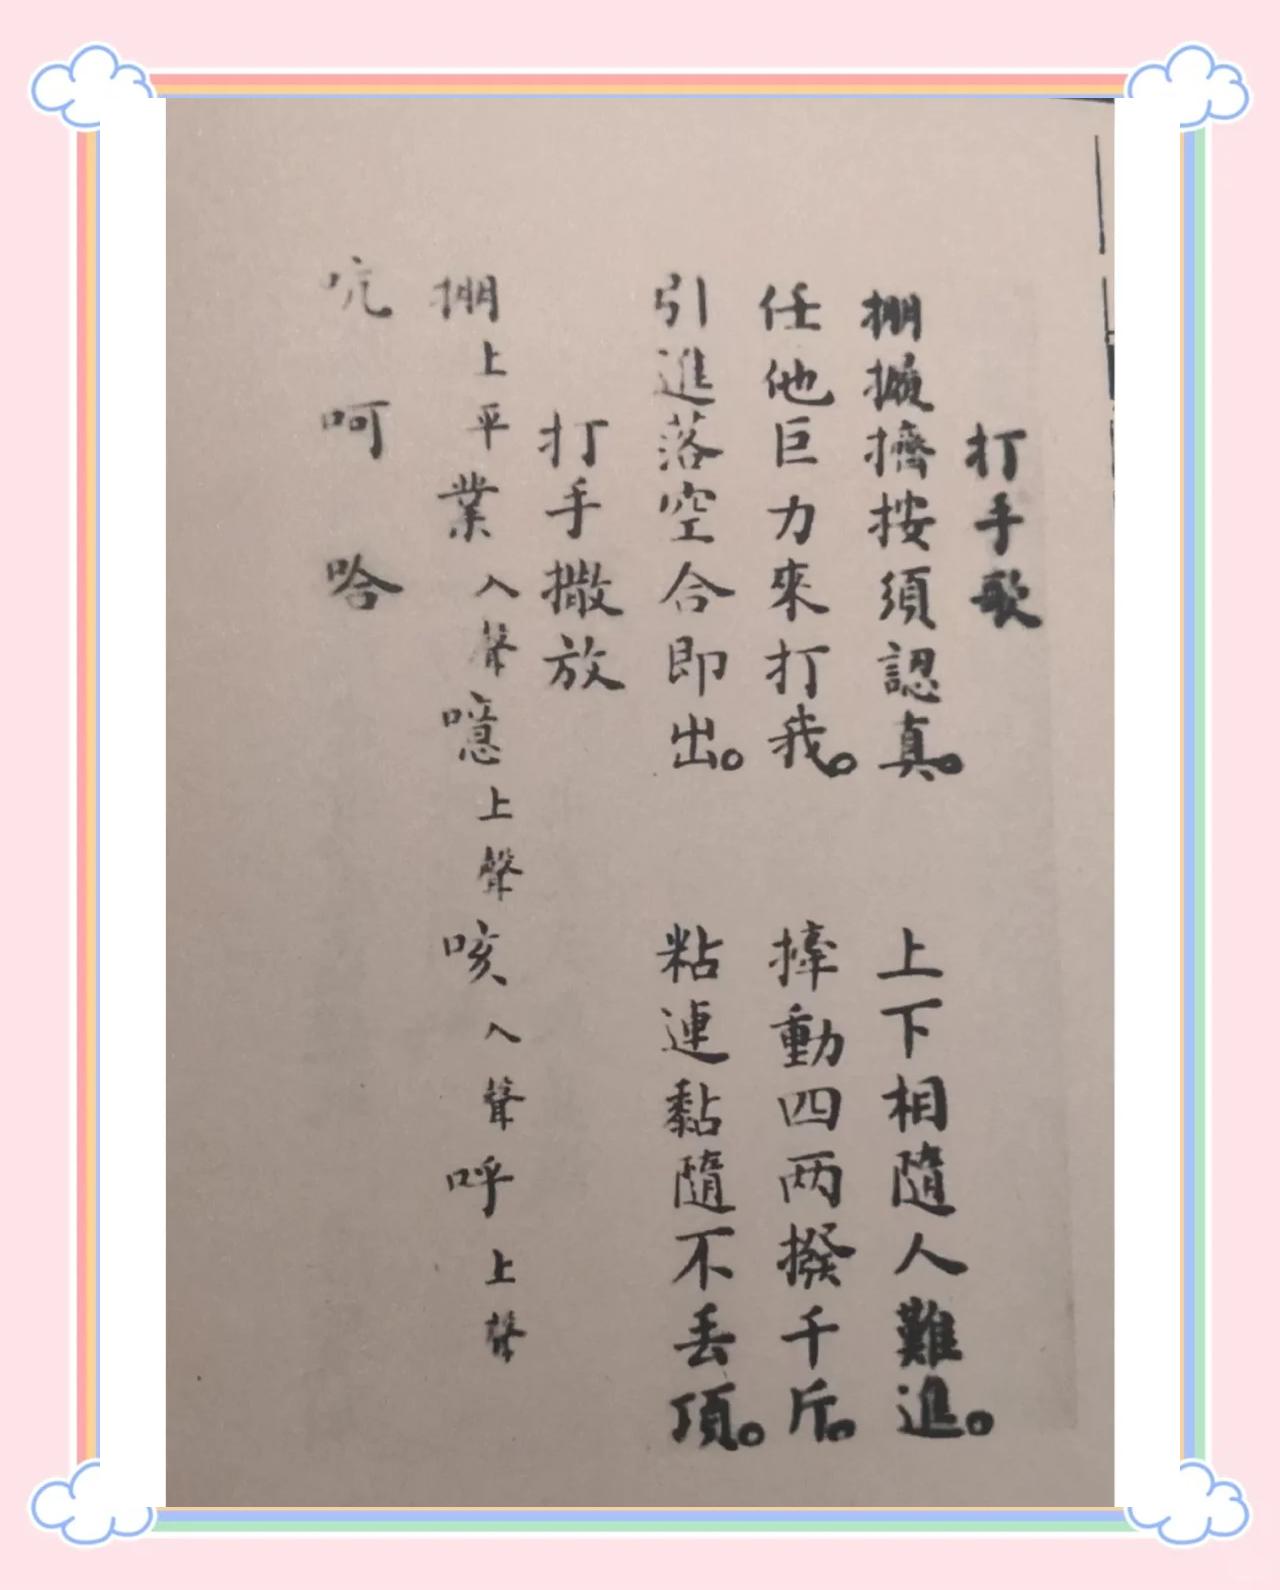 打手歌
掤攦擠按須認真。上下相隨人難進。
任他巨力來打我。撁動四两撥千斤。
引進落空合即出。粘連黏隨不丟頂。
打手撒放
掤上平業入聲噫上聲咳入聲呼上聲
吭呵哈